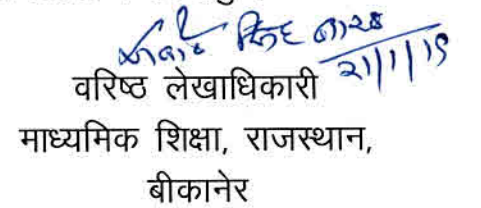 सिंह
21/1/19
वरिष्ठ लेखाधिकारी
माध्यमिक शिक्षा, राजस्थान,
बीकानेर